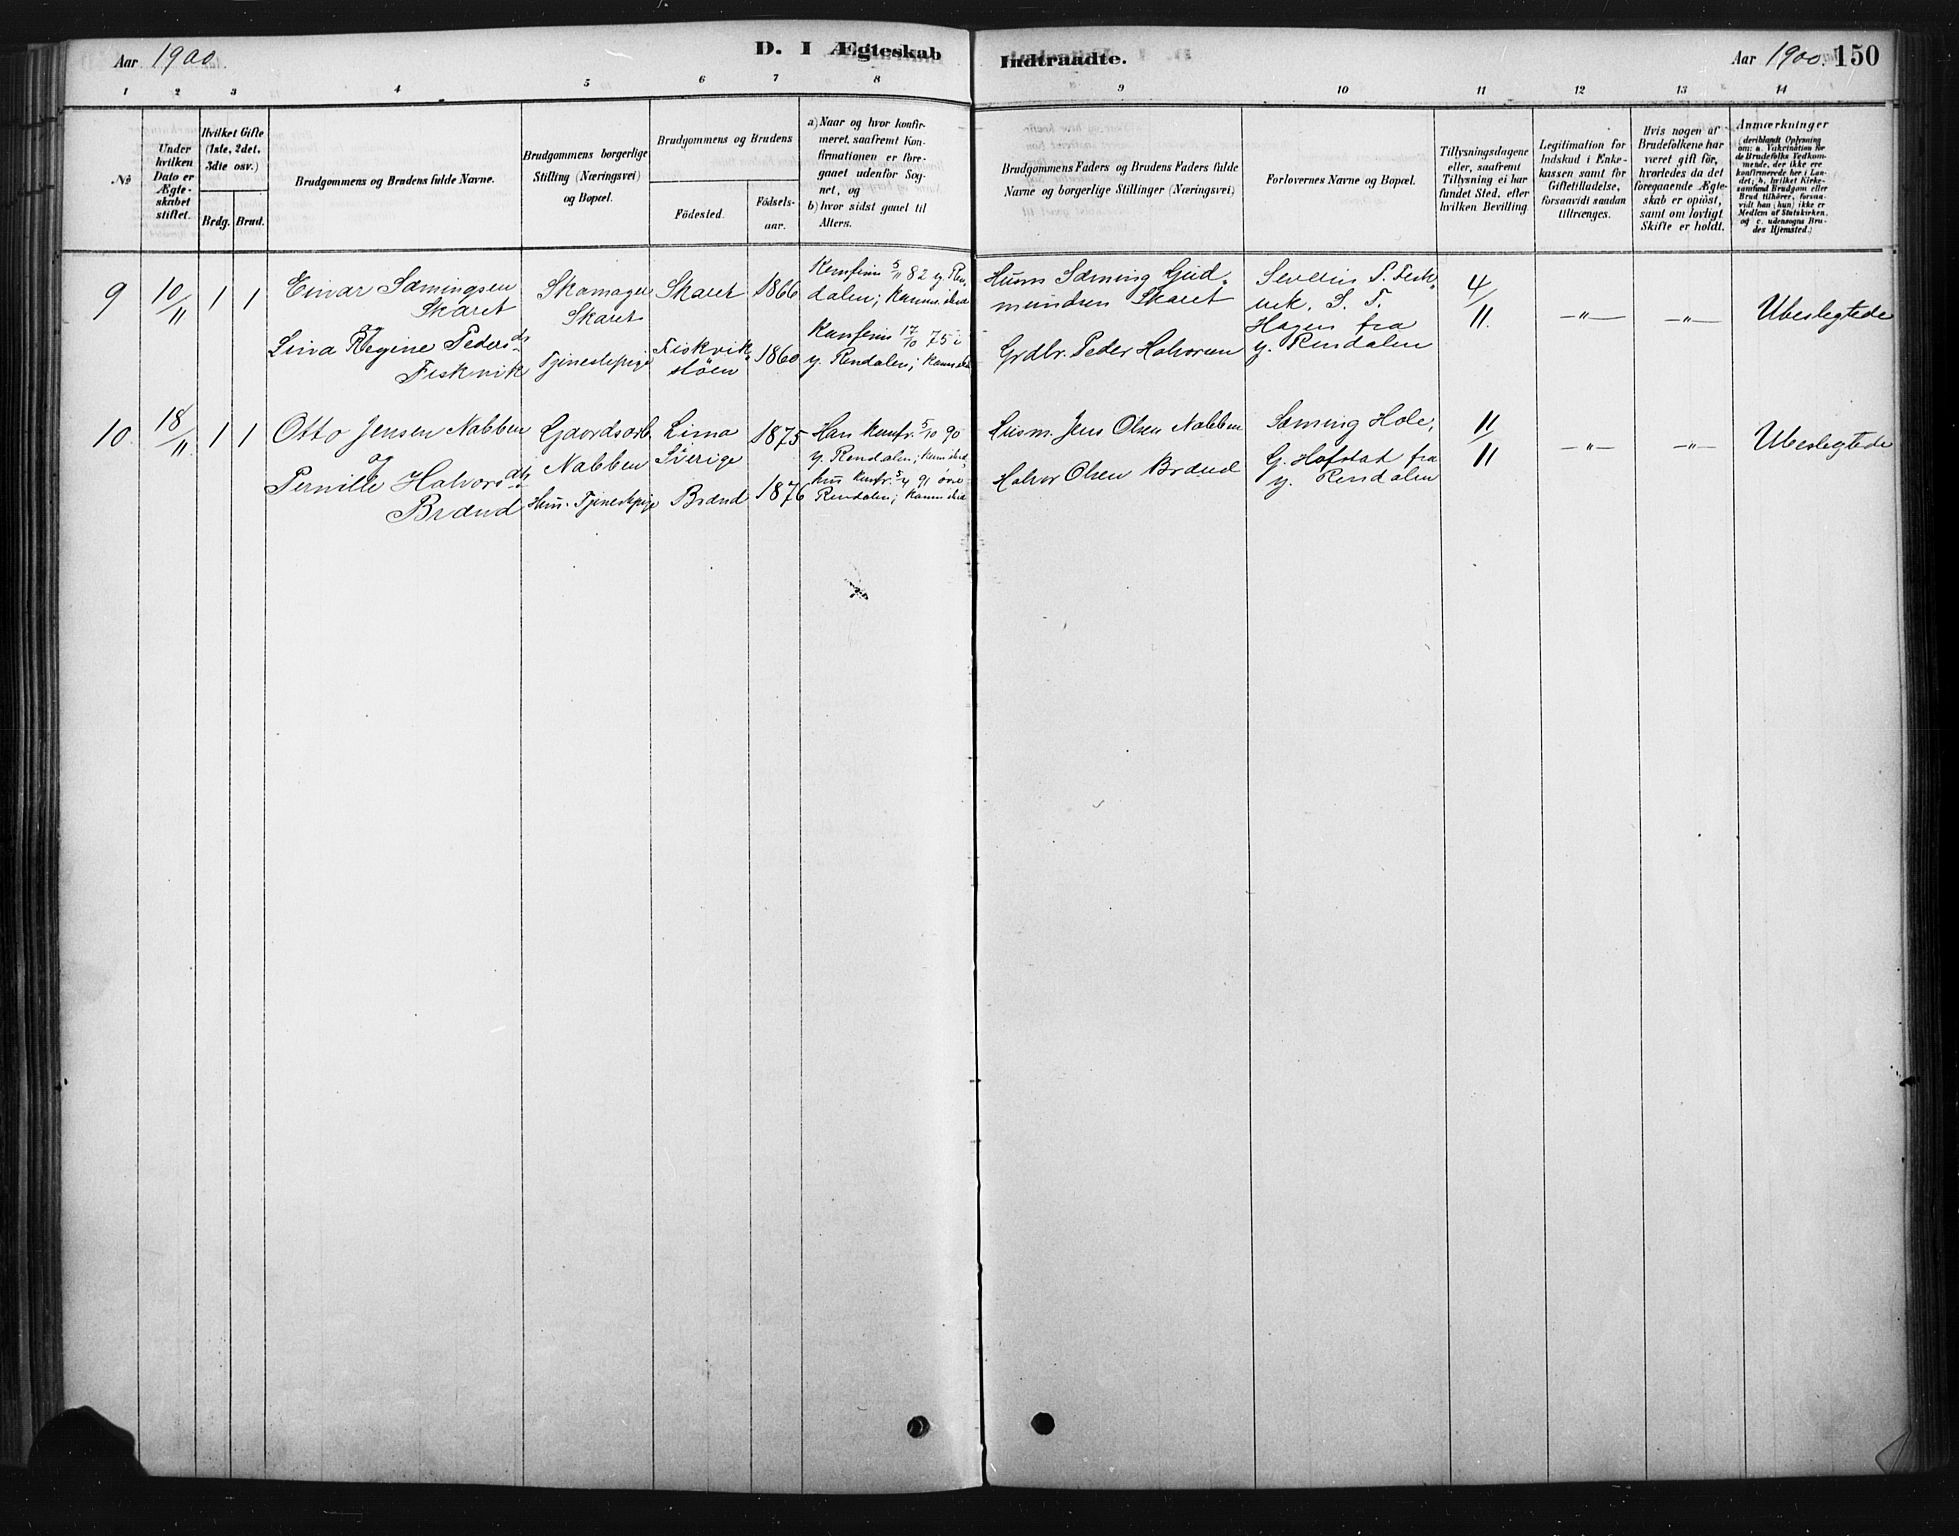 Aar 1900.
D. I Ægteskab
Indtraadte.
Aar 1900. 150
1 2 3 4 5 6 7 8 9 10 11 12 13 14
№
Under
hvilken
Dato er
Ægte-
skabet
stiftet.
Hvilket Gifte
(1ste, 2det,
3die osv.)
Brdg. Brud.
Brudgommens og Brudens fulde Navne.
Brudgommens borgerlige
Stilling (Næringsvei)
og Bopæl.
Brudgommens og Brudens
Födested.
Födsels-
aar.
a) Naar og hvor konfir-
meret, saafremt Kon-
firmationen er fore-
gaaet udenfor Sog-
net, og
b) hvor sidst gaaet til
Alters.
Brudgommens Faders og Brudens Faders fulde
Navne og borgerlige Stillinger (Næringsvei)
Forlovernes Navne og Bopæl.
Tillysningsdagene
eller, saafremt
Tillysning ei har
fundet Sted, efter
hvilken Bevilling.
Legitimation for
Indskud i Enke-
kassen samt for
Giftetilladelse,
forsaavidt saadan
tiltrænges.
Hvis nogen af
Brudefolkene har
været gift för,
hvorledes da det
foregaaende Ægte-
skab er oplöst,
samt om lovligt
Skifte er holdt.
Anmærkninger
(deriblandt Oplysning
om: a. Vakcination for
de Brudefolks Vedkom-
mende, der ikke ere
konfirmerede her i Lan-
det; b. hvilket Kirke-
samfund Brudgom eller
Brud tilhører, forsaa-
vidt han (hun) ikke er
Medlem af Statskirken,
og c. udensogns Bru-
des Hjemsted.)
9 10/11 1 1
Einar Sæmingsen
Skaret
og
Lina Regine Pedersdtr
Fiskvik
Skomager
Skaret
Tjenestepige
Skaret 1866
Fiskvik-
støen 1860
Konfirm 5/11 82 y. Ren-
dalen; komm. ibid
Konfirm 17/10 75 i
y. Rendalen; komm ibid
Husm Sæming Gud-
mundsen Skaret
Grdbr. Peder Halvorsen
Severin P. Fisk-
vik. S. T.
Hagen fra
y. Rendalen
4/11.
—"— —"— Ubeslegtede
10. 18/11 1 1
Otto Jensen Nabben
og
Pernille Halvorsdtr
Brænd
Gaardsarb.
Nabben
Hun. Tjenestepige
Lima
Sverige 1875
Brænd 1876
Han konfr. 5/10 90
y. Rendalen; kom ibid
hun konfr. 5/7 91 øvre
Rendalen; komm ibid
Husm. Jens Olsen Nabben
Halvor Olsen Brænd
Sæming Hole,
G. Hafstad fra
y. Rendalen
11/11
—"— —"— Ubeslegtede